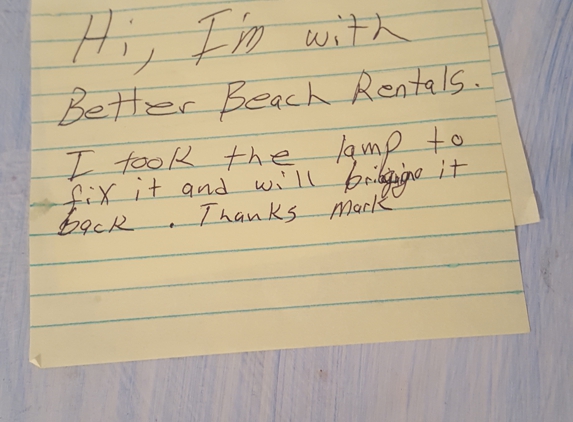 Hi, I'm with
Better Beach Rentals.
I took the lamp to
fix it and will it
back. Thanks Mark